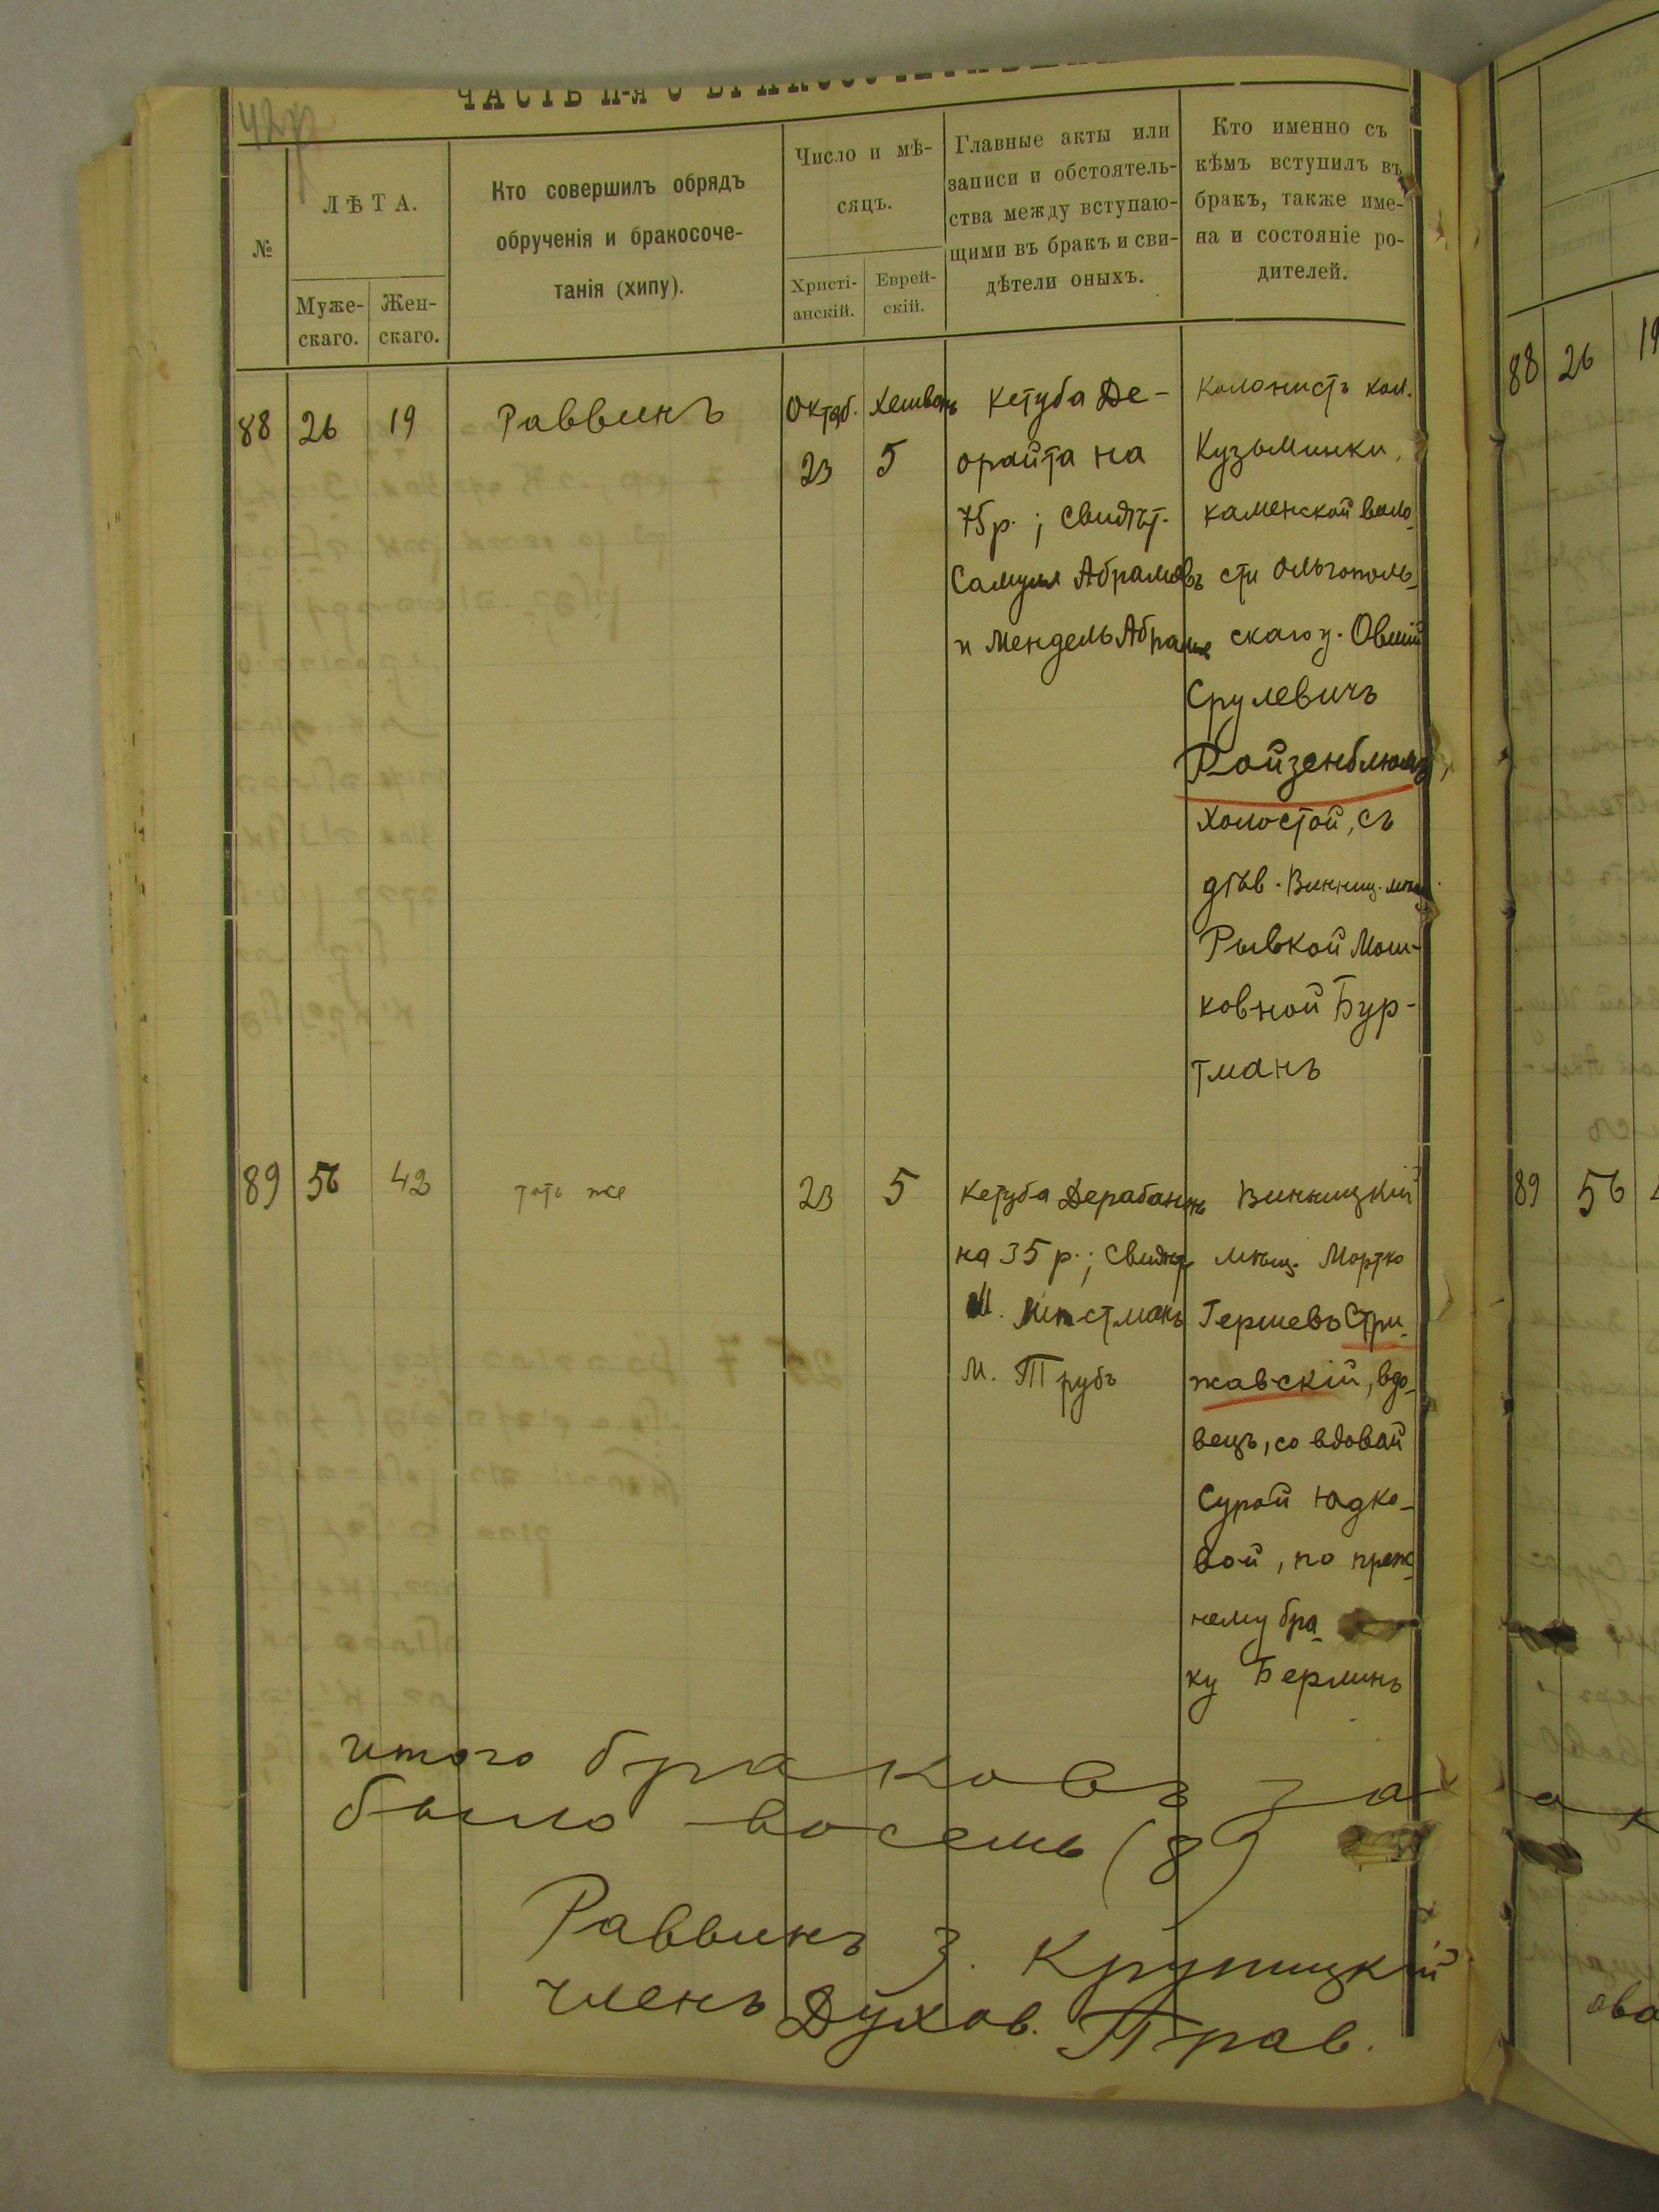 ЧАСТЬ II-я О
№
ЛѢТА.
Муже-
скаго.
Жен-
скаго.
Кто совершилъ обрядъ
обрученія и бракосоче-
танія (хипу).
Число и мѣ-
сяцъ.
Христі-
анскій.
Еврей-
скій.
Главные акты или
записи и обстоятель-
ства между вступаю-
щими въ бракъ и сви-
дѣтели оныхъ.
Кто именно съ
кѣмъ вступилъ въ
бракъ, также име-
на и состояніе ро-
дителей.
88
26
19
Раввинъ
Октяб.
23
Хешвонъ
5
Кетуба Де-
орайта на
75 р.; свидѣт.
Самуил Абрамовъ
и Мендель
Колонистъ кол.
Кузьминки,
каменской воло-
сти Ольгополь-
скаго у. Овшій
Срулевичъ
Ройзенблюмъ,
холостой, съ
дѣв. Винниц. мѣщ.
Рывкой Мош-
ковной Бур-
тманъ
89
56
42
тотъ же
23
5
Кетуба Дерабананъ
на 35 р.; свидѣт
М. Трубъ
Винницкій
мѣщ. Мортко
Гершевъ Стри-
жавскій, вдо-
вецъ, со вдовой
Сурой Юдко-
вой, по преж-
нему бра-
ку Берминъ
итого браковъ за
было восемь (8)
Раввинъ З. Крупицкій
членъ Духов. Прав.
88 26 19
89 56